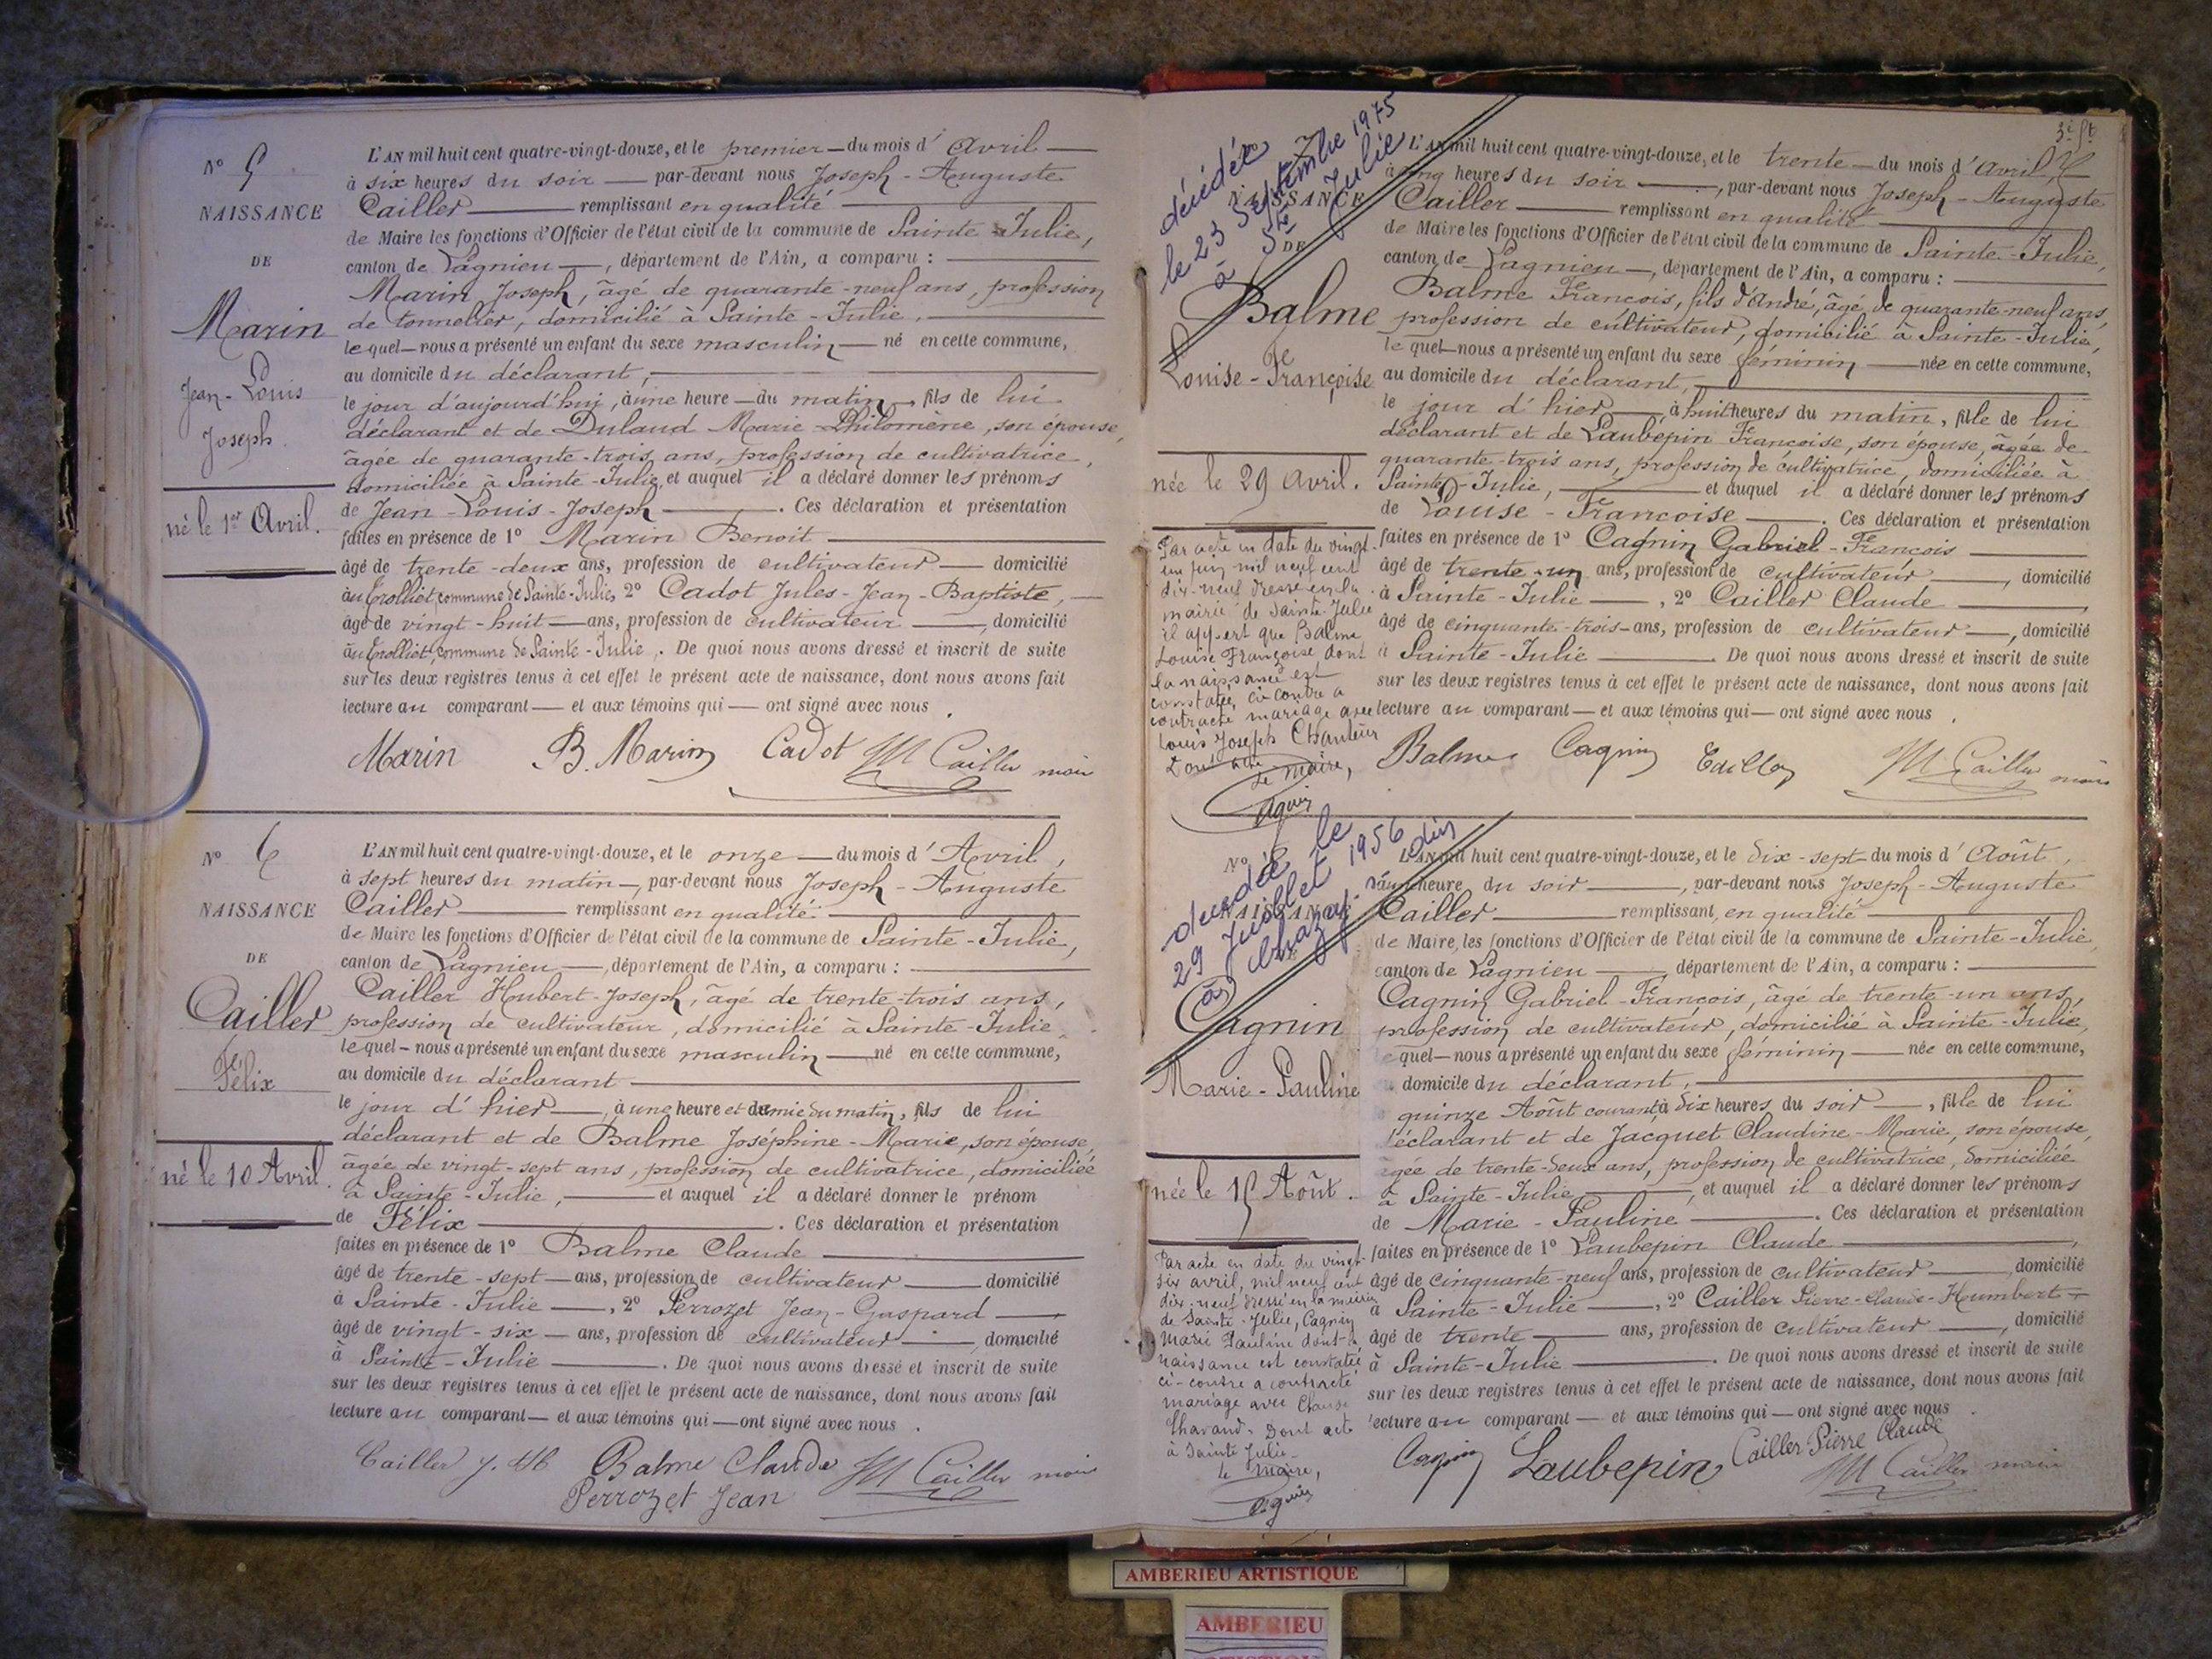 N° 5
NAISSANCE
DE
Marin
Jean-Louis
Joseph.
né le 1er Avril.
L'AN mil huit cent quatre-vingt-douze, et le premier — du mois d'Avril —
à six heures du soir — par-devant nous Joseph-Auguste
Cailler — remplissant en qualité —
de Maire les fonctions d'Officier de l'état civil de la commune de Sainte-Julie,
canton de Lagnieu —, département de l'Ain, a comparu : —
Marin Joseph, âgé de quarante-neuf ans, profession
de tonnelier, domicilié à Sainte-Julie, —
lequel — nous a présenté un enfant du sexe masculin — né en cette commune,
au domicile du déclarant, —
le jour d'aujourd'hui, à une heure — du matin —, fils de lui
déclarant et de Dulaud Marie-Philomène, son épouse,
âgée de quarante-trois ans, profession de cultivatrice,
domiciliée à Sainte-Julie, et auquel il a déclaré donner les prénoms
de Jean-Louis-Joseph —. Ces déclaration et présentation
faites en présence de 1° Marin Benoit —
âgé de trente-deux ans, profession de cultivateur — domicilié
au Trolliet commune de Sainte-Julie, 2° Cadot Jules-Jean-Baptiste, —
âgé de vingt-huit — ans, profession de cultivateur —, domicilié
au Trolliet, commune de Sainte-Julie,. De quoi nous avons dressé et inscrit de suite
sur les deux registres tenus à cet effet le présent acte de naissance, dont nous avons fait
lecture au comparant — et aux témoins qui — ont signé avec nous.
Marin B. Marin Cadot Cailler maire
N° 6
NAISSANCE
DE
Cailler
Félix
né le 10 Avril.
L'AN mil huit cent quatre-vingt-douze, et le onze — du mois d'Avril,
à sept heures du matin —, par-devant nous Joseph-Auguste
Cailler — remplissant en qualité —
de Maire les fonctions d'Officier de l'état civil de la commune de Sainte-Julie,
canton de Lagnieu —, département de l'Ain, a comparu : —
Cailler Hubert-Joseph, âgé de trente-trois ans,
profession de cultivateur, domicilié à Sainte-Julie,
lequel — nous a présenté un enfant du sexe masculin — né en cette commune,
au domicile du déclarant —
le jour d'hier —, à une heure et demie du matin, fils de lui
déclarant et de Balme Joséphine-Marie, son épouse,
âgée de vingt-sept ans, profession de cultivatrice, domiciliée
à Sainte-Julie, — et auquel il a déclaré donner le prénom
de Félix —. Ces déclaration et présentation
faites en présence de 1° Balme Claude —
âgé de trente-sept — ans, profession de cultivateur — domicilié
à Sainte-Julie —, 2° Perrozet Jean-Gaspard —
âgé de vingt-six — ans, profession de cultivateur —, domicilié
à Sainte-Julie —. De quoi nous avons dressé et inscrit de suite
sur les deux registres tenus à cet effet le présent acte de naissance, dont nous avons fait
lecture au comparant — et aux témoins qui — ont signé avec nous.
Cailler Balme Claude Cailler maire
Perrozet Jean
N° 7
décédée
le 23 Septembre 1975
à Ste Julie
NAISSANCE
DE
Balme
Louise-Françoise
née le 29 Avril.
Par acte en date du vingt-
un juin mil neuf cent
dix-neuf dressé en la
mairie de Sainte-Julie
il appert que Balme
Louise Françoise dont
la naissance est
constatée ci-contre a
contracté mariage avec
Louis Joseph Chanteur
Dont acte
Le maire,
Cagnin
L'AN mil huit cent quatre-vingt-douze, et le trente — du mois d'Avril,
à cinq heures du soir —, par-devant nous Joseph-Auguste
Cailler — remplissant en qualité —
de Maire les fonctions d'Officier de l'état civil de la commune de Sainte-Julie,
canton de Lagnieu —, département de l'Ain, a comparu : —
Balme François, fils d'André, âgé de quarante-neuf ans,
profession de cultivateur, domicilié à Sainte-Julie,
lequel — nous a présenté un enfant du sexe féminin — née en cette commune,
au domicile du déclarant, —
le jour d'hier — à huit heures du matin, fille de lui
déclarant et de Laubépin Françoise, son épouse, âgée de
quarante-trois ans, profession de cultivatrice, domiciliée à
Sainte-Julie, — et auquel il a déclaré donner les prénoms
de Louise-Françoise —. Ces déclaration et présentation
faites en présence de 1° Cagnin Gabriel-François —
âgé de trente-un ans, profession de cultivateur —, domicilié
à Sainte-Julie —, 2° Cailler Claude —,
âgé de cinquante-trois — ans, profession de cultivateur —, domicilié
à Sainte-Julie —. De quoi nous avons dressé et inscrit de suite
sur les deux registres tenus à cet effet le présent acte de naissance, dont nous avons fait
lecture au comparant — et aux témoins qui — ont signé avec nous.
Balme Cagnin Cailler Cailler maire
N° 8
décédée le
29 Juillet 1956
à
NAISSANCE
DE
Cagnin
Marie-Pauline
née le 15 Août.
Par acte en date du vingt-
six avril, mil neuf cent
dix-neuf dressé en la mairie
de Sainte-Julie, Cagnin
Marie Pauline dont la
naissance est constatée
ci-contre a contracté
mariage avec Claude
Chavand. Dont acte
à Sainte Julie
Le Maire,
Cagnin
L'AN mil huit cent quatre-vingt-douze, et le dix-sept — du mois d'Août,
à une heure du soir —, par-devant nous Joseph-Auguste
Cailler — remplissant en qualité —
de Maire, les fonctions d'Officier de l'état civil de la commune de Sainte-Julie,
canton de Lagnieu —, département de l'Ain, a comparu : —
Cagnin Gabriel-François, âgé de trente-un ans,
profession de cultivateur, domicilié à Sainte-Julie,
lequel — nous a présenté un enfant du sexe féminin — née en cette commune,
au domicile du déclarant, —
quinze Août courant à dix heures du soir —, fille de lui
déclarant et de Jacquet Claudine-Marie, son épouse,
âgée de trente-deux ans, profession de cultivatrice, domiciliée
à Sainte-Julie —, et auquel il a déclaré donner les prénoms
de Marie-Pauline —. Ces déclaration et présentation
faites en présence de 1° Laubepin Claude —,
âgé de cinquante-neuf ans, profession de cultivateur — domicilié
à Sainte-Julie —, 2° Cailler Pierre-Claude-Humbert —
âgé de trente — ans, profession de cultivateur —, domicilié
à Sainte-Julie —. De quoi nous avons dressé et inscrit de suite
sur les deux registres tenus à cet effet le présent acte de naissance, dont nous avons fait
lecture au comparant — et aux témoins qui — ont signé avec nous.
Cagnin Laubepin Cailler Pierre Claude
Cailler maire
AMBERIEU ARTISTIQUE
AMBERIEU